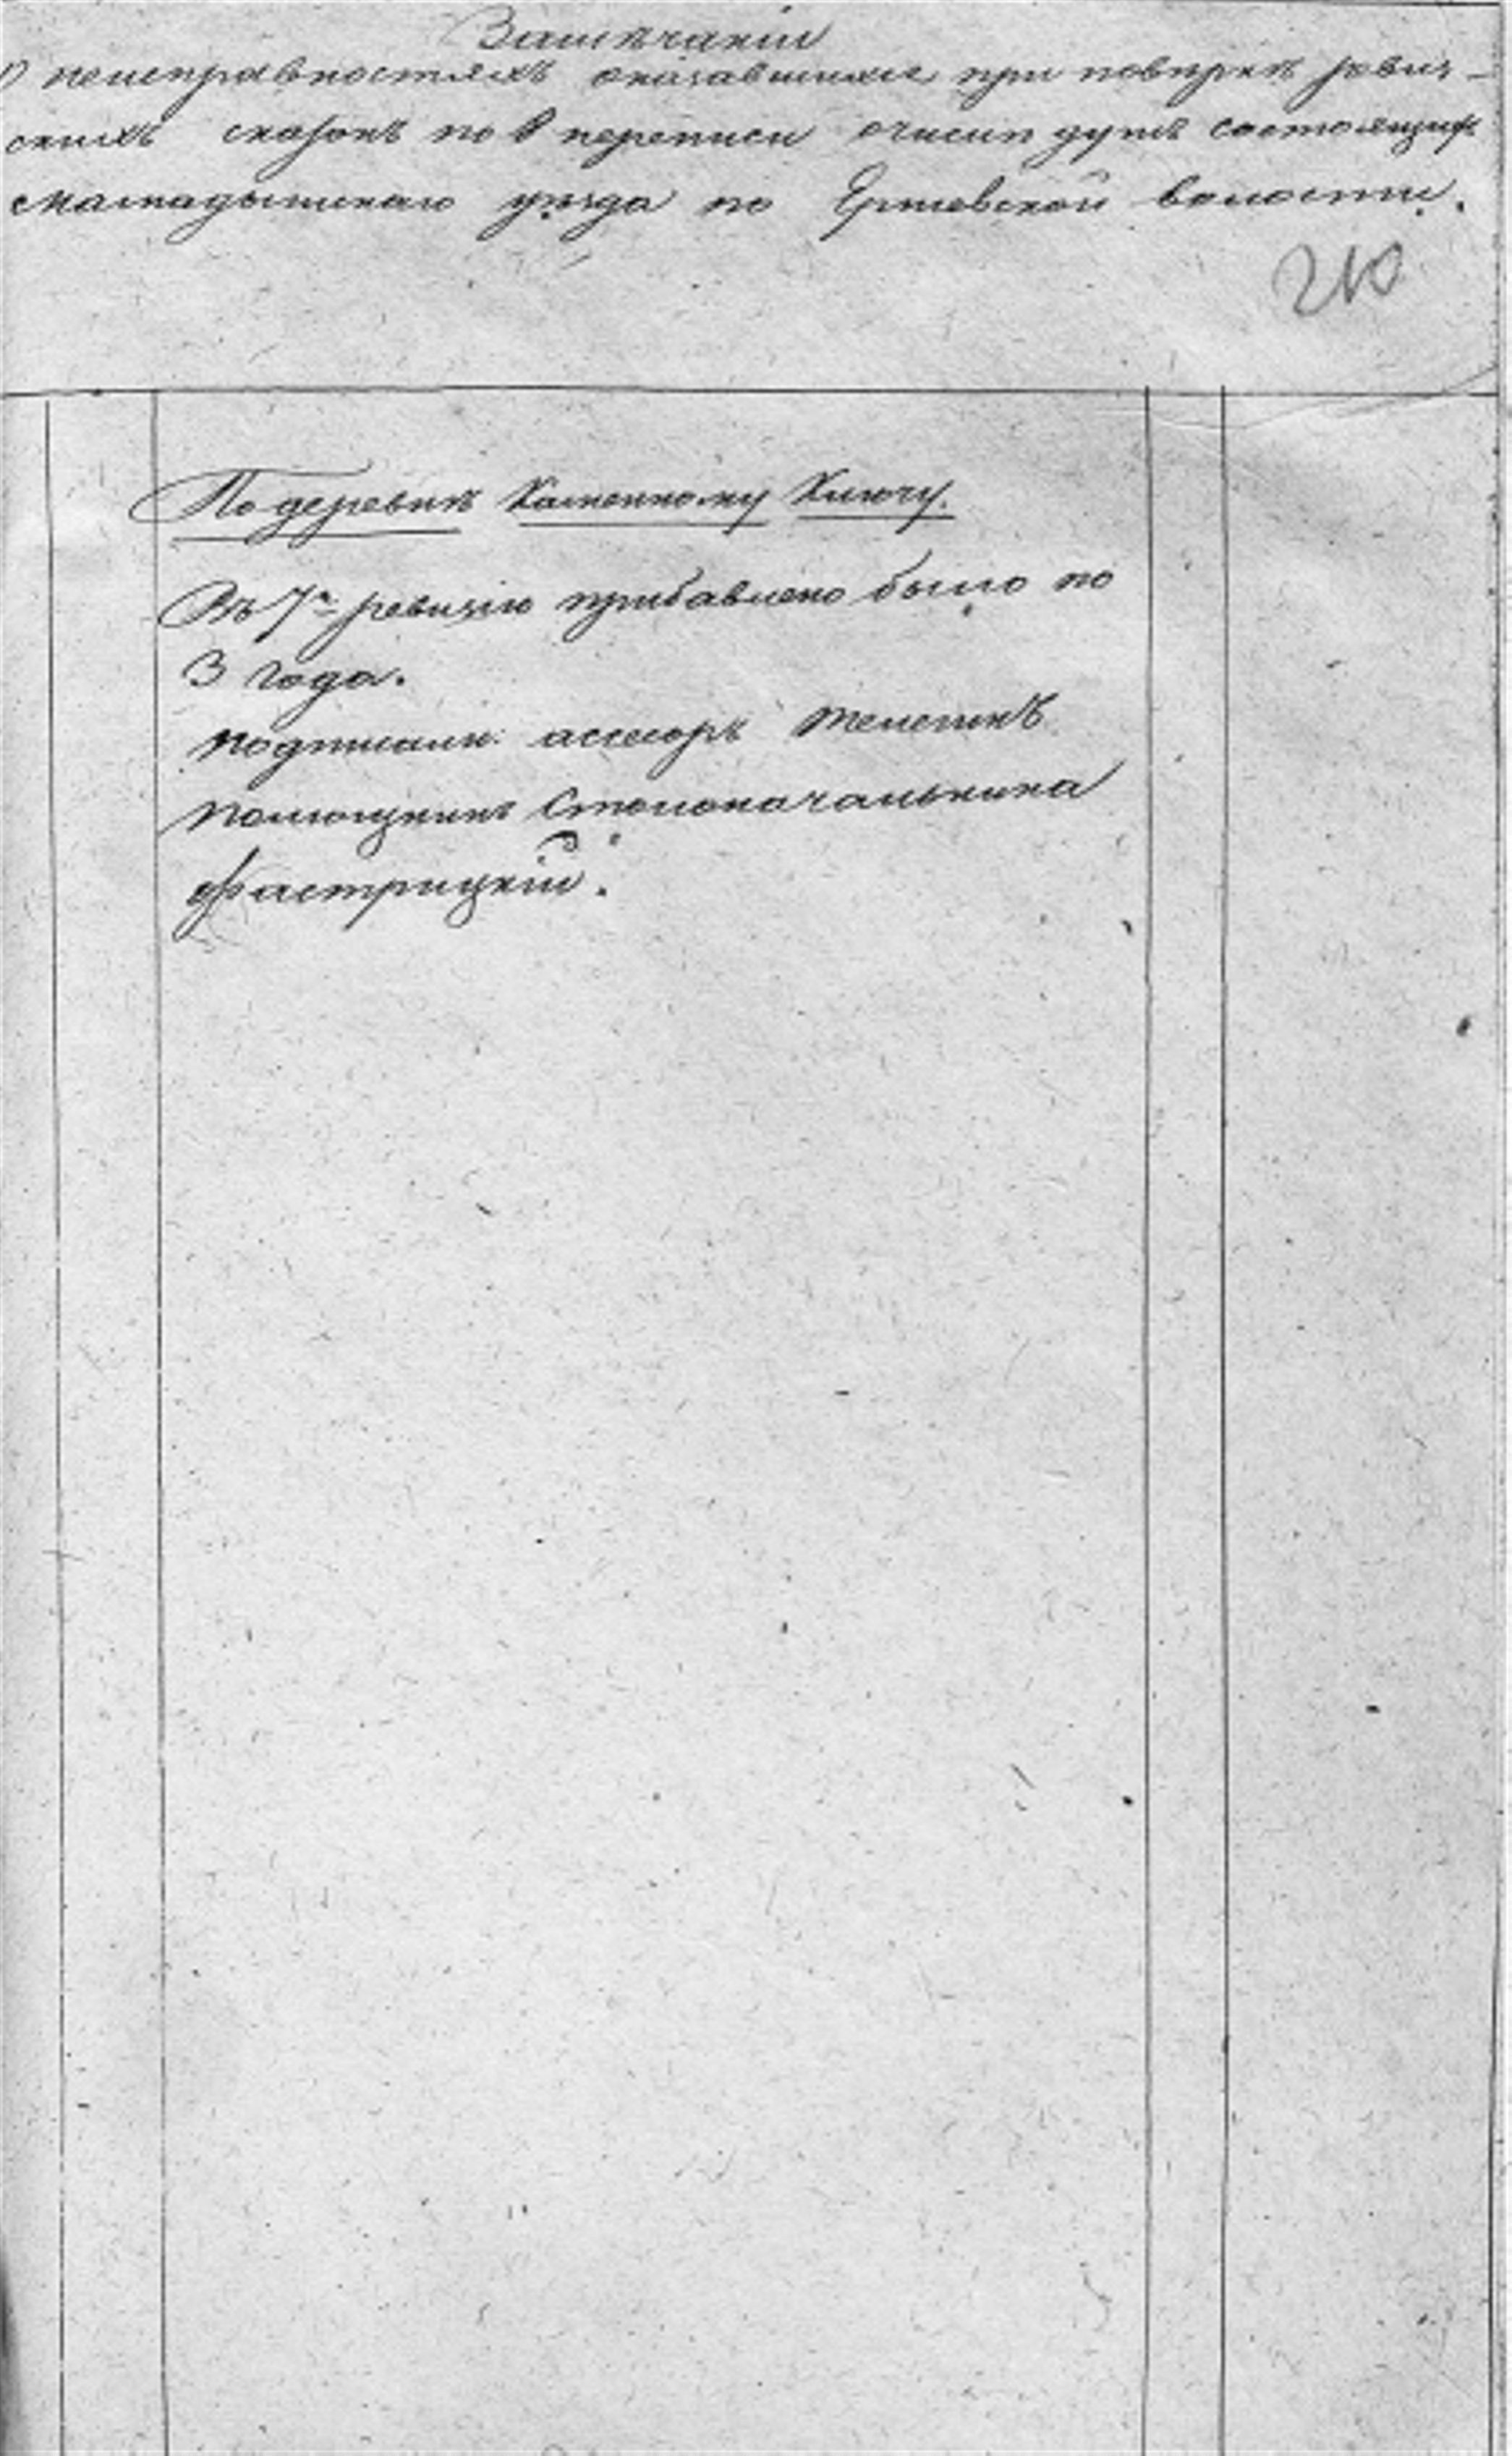 Замѣчанiи
О неисправностяхъ оказавшихся при повѣркѣ ревиз-
скихъ сказокъ по 8 переписи очисли душъ состоящихъ
Мамадышскаго уѣзда по Ершевской волости.
210
По деревнѣ Каменному Ключу.
Въ 7ю ревизiю прибавлено было по
3 года.
подписали: ассесоръ
помощникъ Столоначальника
Фастрицкiй.